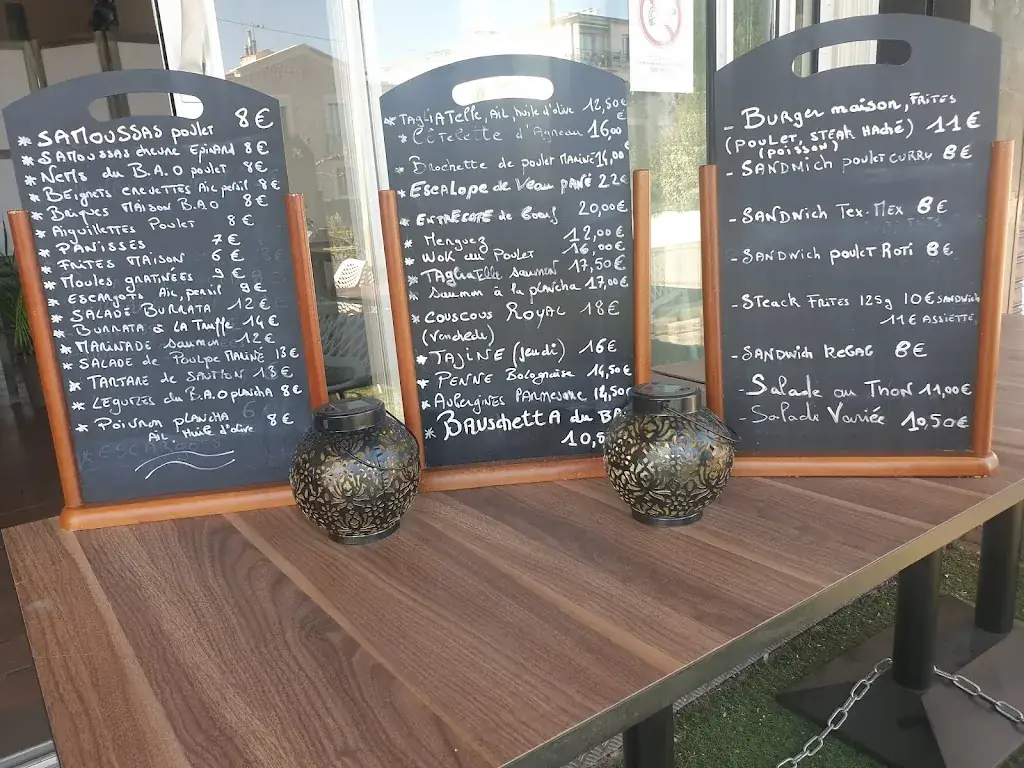 * SAMOUSSAS poulet 8€
* SAMOUSSAS chevre Epinard 8€
* Nems du B.A.O poulet 8€
* BEignets crevettes Aic, persil 8€
* Briques MAISON B.A.O 8€
* Aiguillettes Poulet 8€
* PANISSES 7€
* FRITES MAISON 6€
* Moules gratinées 9€
* ESCARgots Aic, persil 9€
* SALADE BURRATA 12€
* BURRATA à LA Truffe 14€
* MARINADE saumon 12€
* SALADE de Poulpe MARINÉ 13€
* TARTARE de SAUMON 13€
* LEGUMES du B.A.O plancha 8€
* POIVRON PLANCHA 8€
AIL Huile d'olive
* TAGLIATElle, Ail, huile d'olive 12,50€
* Côtelette d'Agneau 16,00
Brochette de poulet MARINÉ 15,00
* EscAlope de Veau PANÉ 22€
* ENTRECÔTE de boeuf 20,00€
* Merguez 12,00€
* Wok au Poulet 16,00€
* TAgliATElle saumon 17,50€
* Saumon à la plancha 17,00€
* couscous ROYAL 18€
(Vendredi)
* TAJINE (jeudi) 16€
* PENNE Bolognaise 14,50€
* Aubergines PARMESANE 14,50€
* BRUSchettA du BA
10,5
- Burger maison, FRITES
(POULET, STEAK HACHÉ) 11€
(POISSON)
- SANDWich poulet CURRY 8€
- SANDWich Tex-Mex 8€
- SANDWich poulet RoTi 8€
- STeack FRITES 125g 10€ SANDWich
11€ ASSIETTE
- SANDWich KeBAB 8€
- Salade au Thon 11,00€
- Salade Variée 10,50€